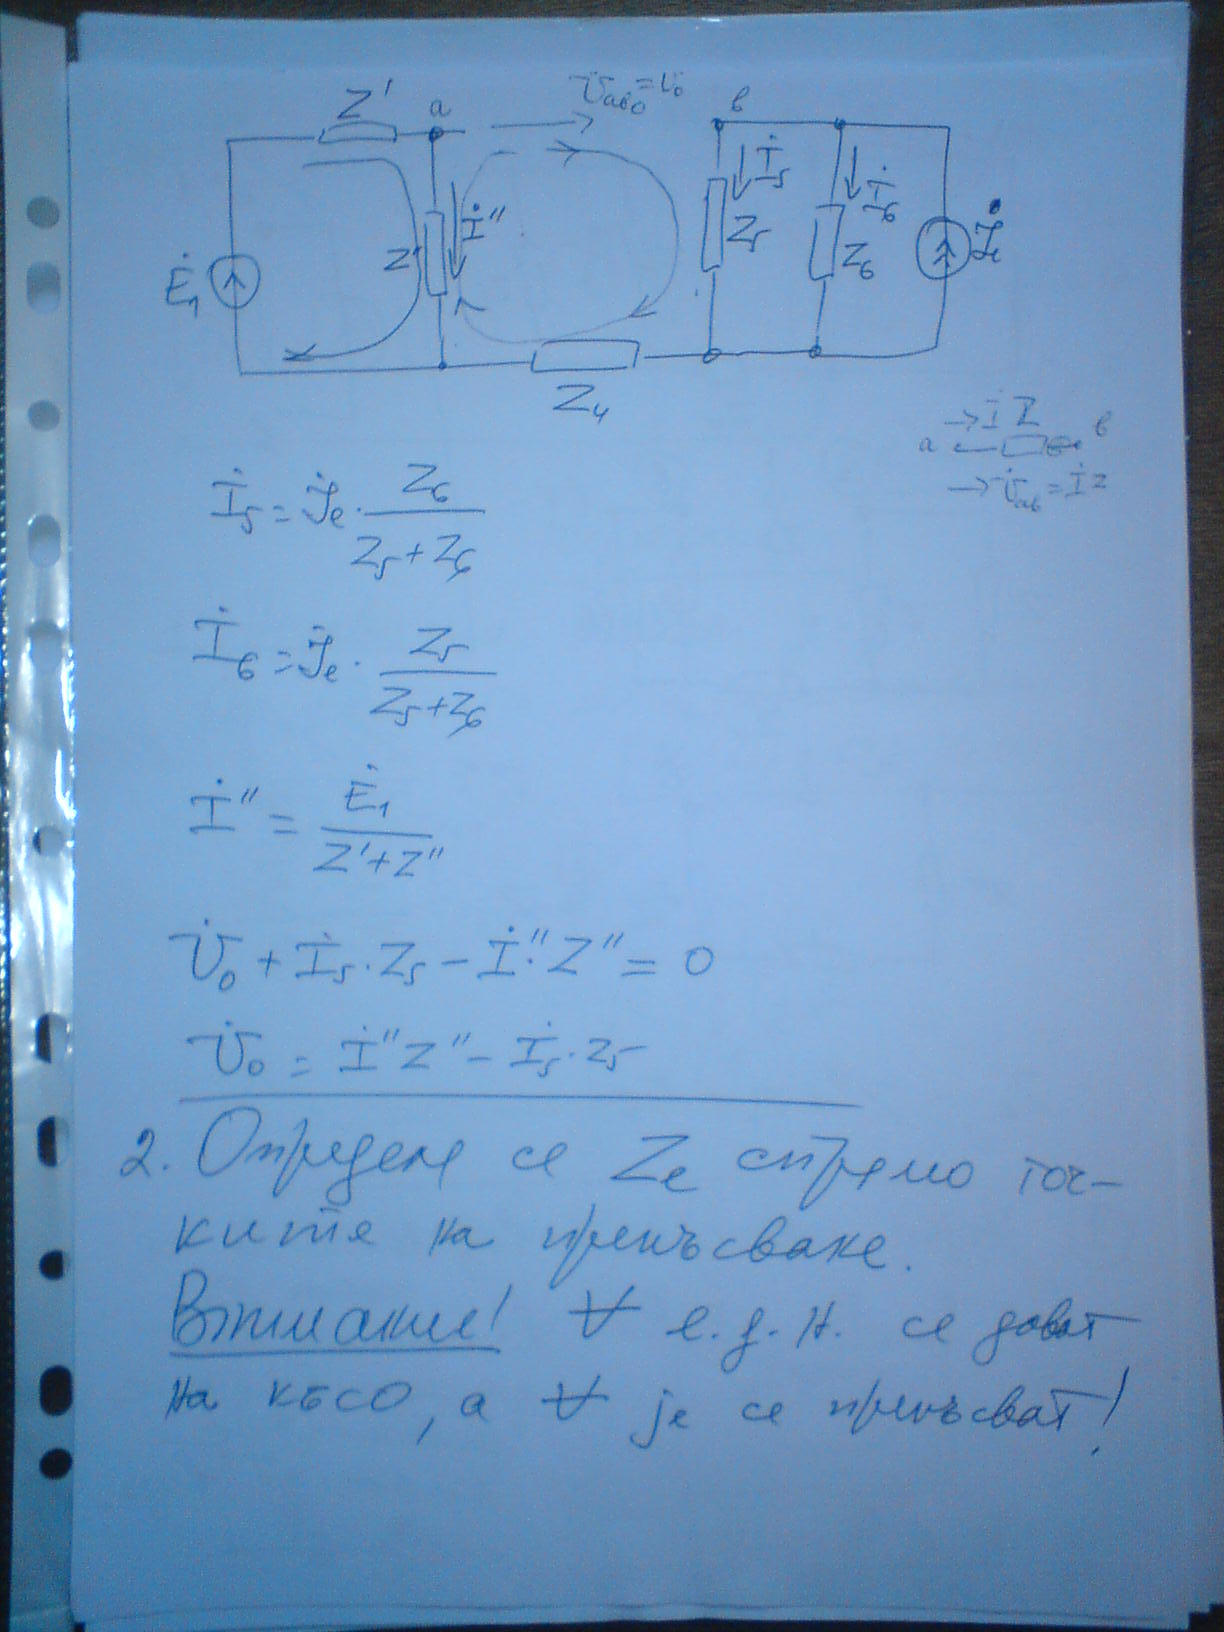 Z' a U̇ab₀ = U̇₀ b
Ė₁ Z'' İ'' İ₅ Z₅ İ₆ Z₆ J̇e
Z₄
→ İ Z
a b
→ U̇ab = İZ
İ₅ = J̇e · Z₆ / (Z₅ + Z₆)
İ₆ = J̇e · Z₅ / (Z₅ + Z₆)
İ'' = Ė₁ / (Z' + Z'')
U̇₀ + İ₅ · Z₅ − İ'' · Z'' = 0
U̇₀ = İ'' Z'' − İ₅ · Z₅
2. Определя се Ze спрямо точ-
ките на прекъсване.
Внимание! ∀ е.д.н. се дават
на късо, а ∀ je се прекъсват!